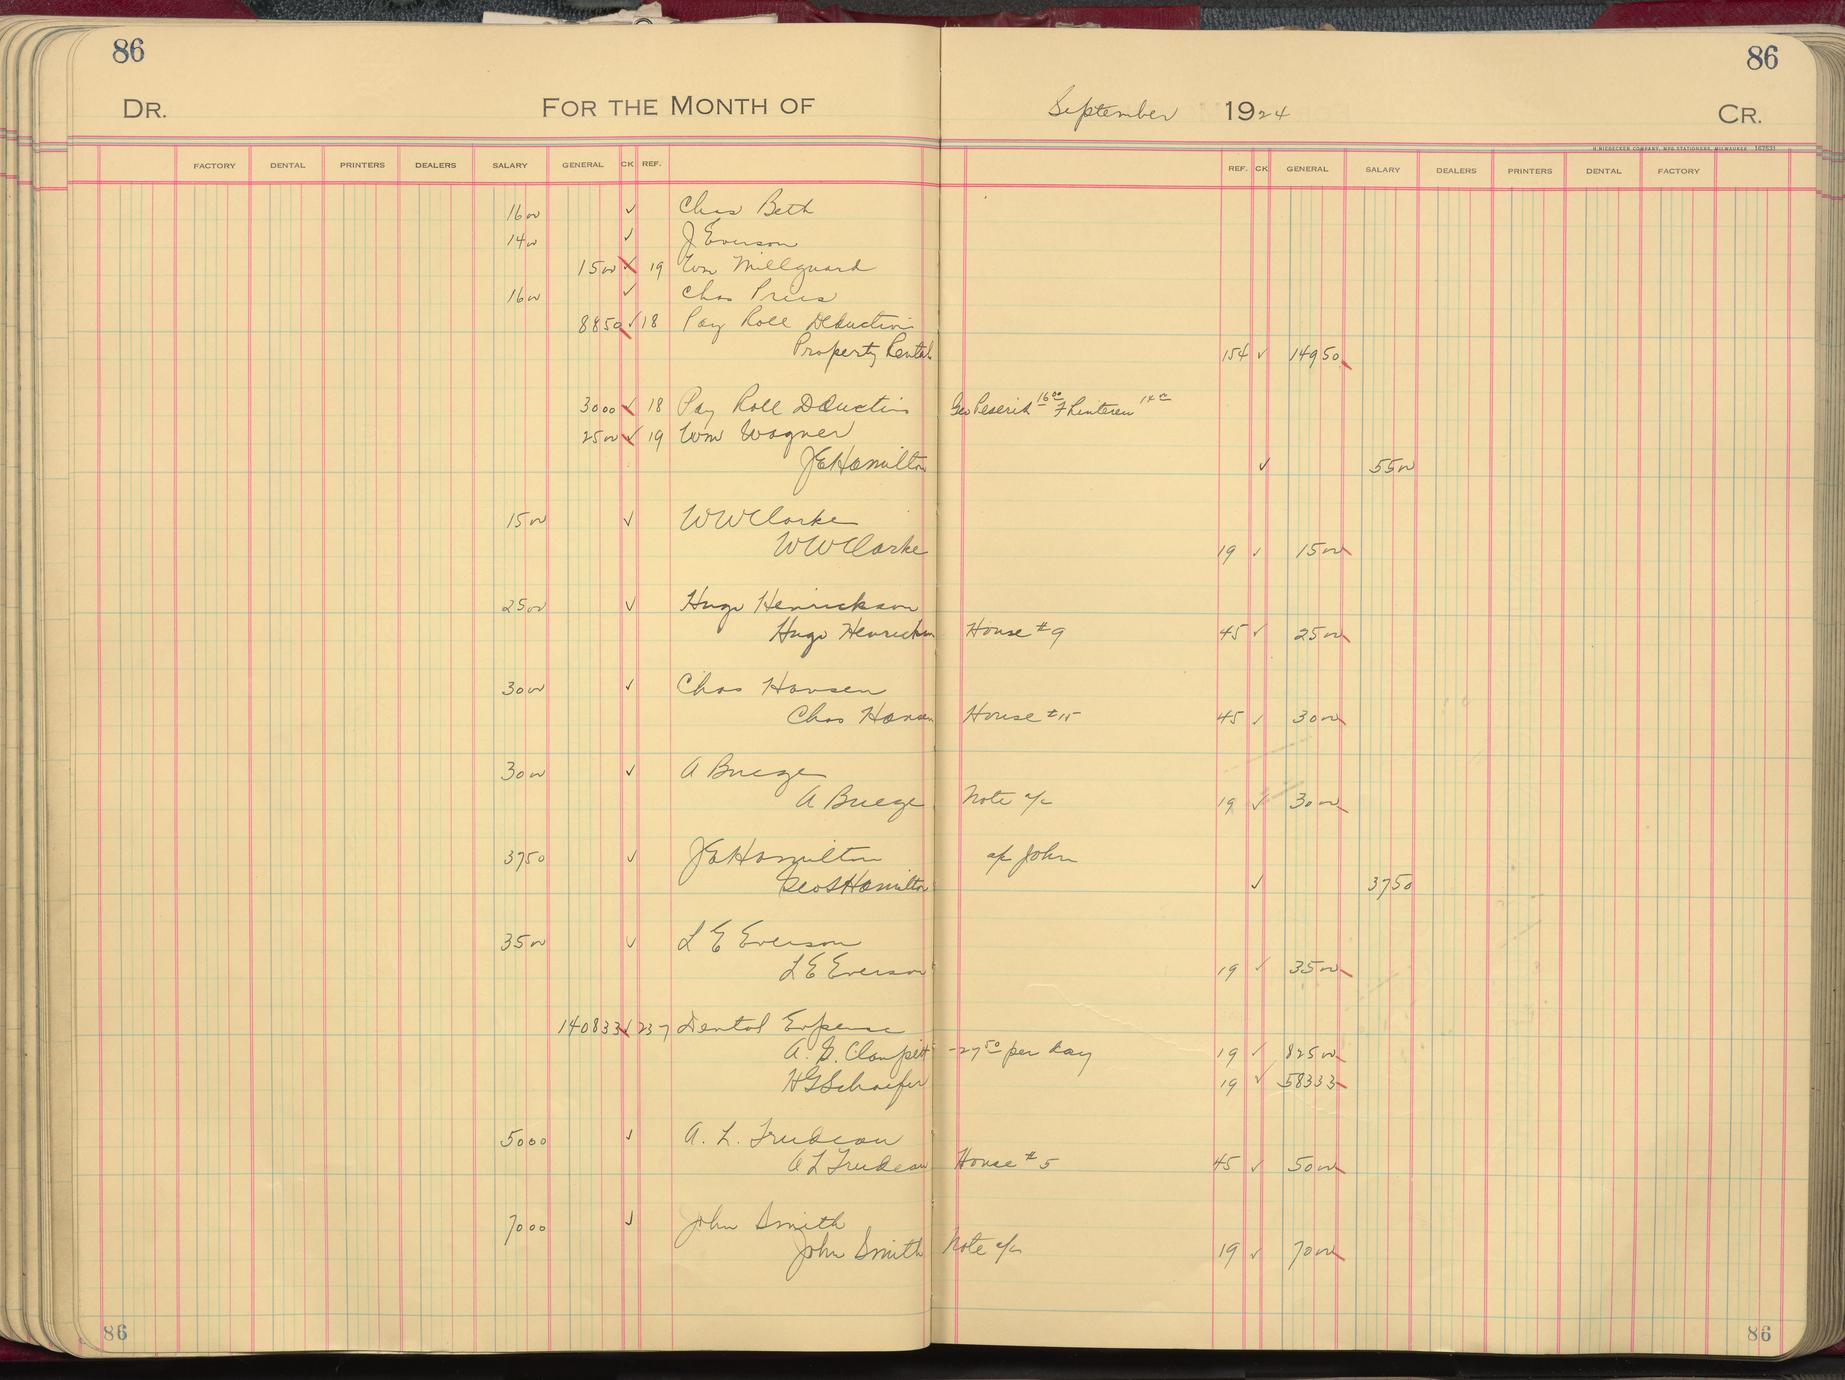 86 86
DR. FOR THE MONTH OF September 1924 CR.
H. NIEDECKEN COMPANY, MFG. STATIONERS, MILWAUKEE 167531
FACTORY DENTAL PRINTERS DEALERS SALARY GENERAL CK REF. REF. CK GENERAL SALARY DEALERS PRINTERS DENTAL FACTORY
16 00 ✓ Chas Beth
14 00 ✓ J Everson
15 00 ✓ 19 Wm Millguard
16 00 ✓ Chas Preis
88 50 ✓ 18 Pay Roll Deduction
Property Rental 154 ✓ 149 50
30 00 ✓ 18 Pay Roll Deduction Geo 16 00 F 14 00
25 00 ✓ 19 Wm Wagner
JE Hamilton ✓ 55 00
15 00 ✓ WW Clarke
WW Clarke 19 ✓ 15 00
25 00 ✓ Hugo Henrickson
Hugo Henrickson House #9 45 ✓ 25 00
30 00 ✓ Chas Hansen
Chas Hansen House #15 45 ✓ 30 00
30 00 ✓ A Buege
A Buege Note a/c 19 ✓ 30 00
37 50 ✓ JE Hamilton a/c John
Geo S Hamilton ✓ 37 50
35 00 ✓ L E Everson
L E Everson 19 ✓ 35 00
1408 33 ✓ 237 Dental Expense
A. G. Clampitt - 27 50 per day 19 ✓ 825 00
HG Schaefer 19 ✓ 583 33
50 00 ✓ A. L. Trudeau
A L Trudeau House #5 45 ✓ 50 00
70 00 ✓ John Smith
John Smith Note a/c 19 ✓ 70 00
86 86